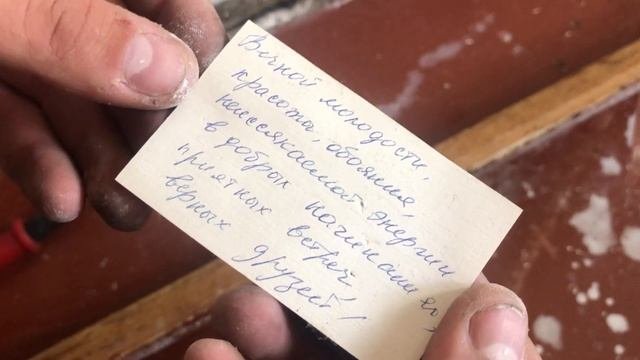 Вечной молодости,
красоты, обаяния,
неиссякаемой энергии
в добрых начинаниях,
приятных встреч
верных друзей!